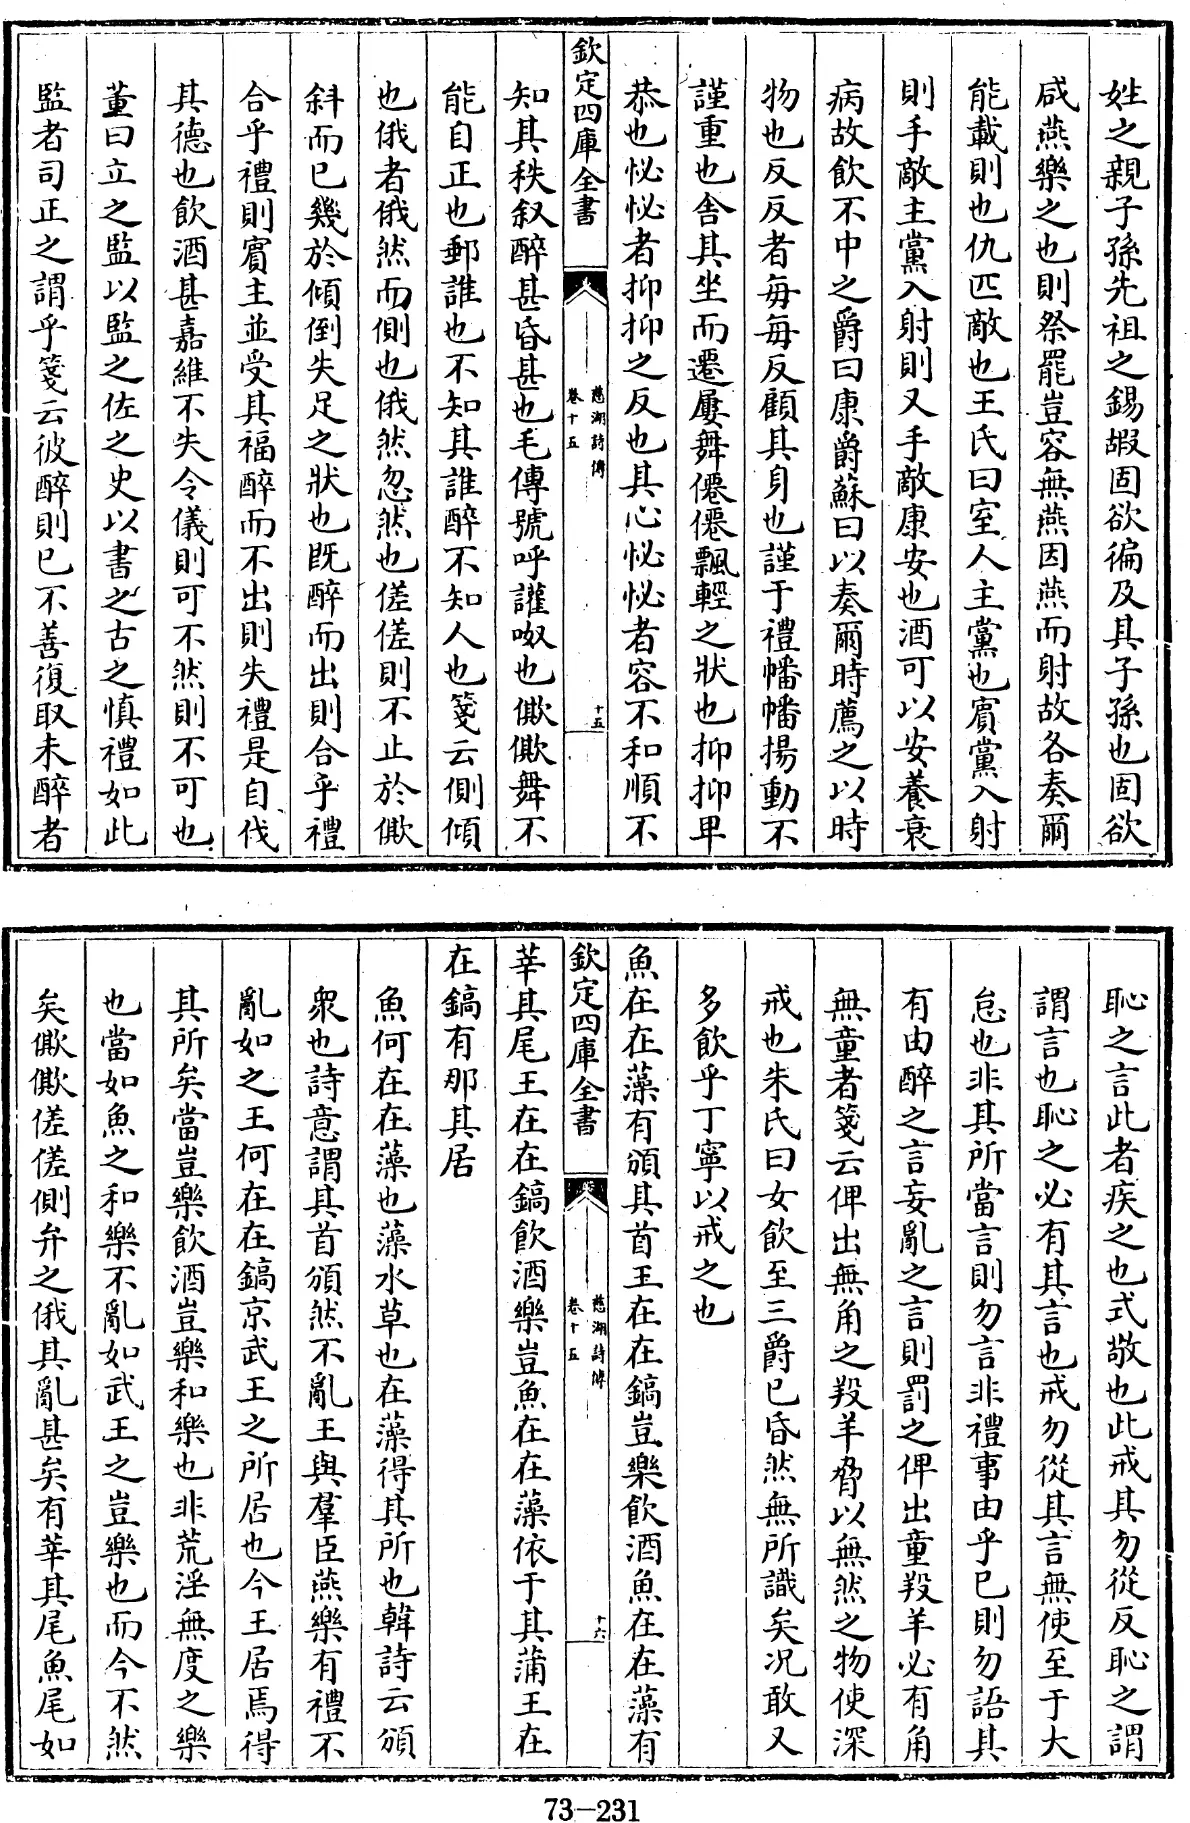 姓之親子孫先祖之錫嘏固欲徧及其子孫也固欲
咸燕樂之也則祭罷豈容無燕因燕而射故各奏爾
能載則也仇匹敵也王氏曰室人主黨也賓黨入射
則手敵主黨入射則又手敵康安也酒可以安養衰
病故飲不中之爵曰康爵蘇曰以奏爾時薦之以時
物也反反者毎毎反顧其身也謹于禮幡幡揚動不
謹重也舍其坐而遷屢舞僊僊飄輕之狀也抑抑卑
恭也怭怭者抑抑之反也其心怭怭者容不和順不
欽定四庫全書
慈湖詩傳
卷十五
十五
知其秩叙醉甚昏甚也毛傳號呼讙呶也僛僛舞不
能自正也郵誰也不知其誰醉不知人也箋云側傾
也俄者俄然而側也俄然忽然也傞傞則不止於僛
斜而已幾於傾倒失足之狀也既醉而出則合乎禮
合乎禮則賓主並受其福醉而不出則失禮是自伐
其德也飲酒甚嘉維不失令儀則可不然則不可也
董曰立之監以監之佐之史以書之古之慎禮如此
監者司正之謂乎箋云彼醉則已不善復取未醉者
恥之言此者疾之也式敬也此戒其勿從反恥之謂
謂言也恥之必有其言也戒勿從其言無使至于大
怠也非其所當言則勿言非禮事由乎已則勿語其
有由醉之言妄亂之言則罰之俾出童羖羊必有角
無童者箋云俾出無角之羖羊脅以無然之物使深
戒也朱氏曰女飲至三爵已昏然無所識矣况敢又
多飲乎丁寧以戒之也
魚在在藻有頒其首王在在鎬豈樂飲酒魚在在藻有
欽定四庫全書
慈湖詩傳
卷十五
十六
莘其尾王在在鎬飲酒樂豈魚在在藻依于其蒲王在
在鎬有那其居
魚何在在藻也藻水草也在藻得其所也韓詩云頒
衆也詩意謂其首頒然不亂王與羣臣燕樂有禮不
亂如之王何在在鎬京武王之所居也今王居焉得
其所矣當豈樂飲酒豈樂和樂也非荒淫無度之樂
也當如魚之和樂不亂如武王之豈樂也而今不然
矣僛僛傞傞側弁之俄其亂甚矣有莘其尾魚尾如
73-231